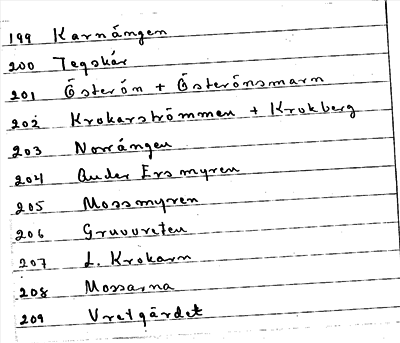 199 Karnängen
200 Tegskär
201 Österön + Österönsmarn
202 Krokarströmmen + Krokberg
203 Norrängen
204 Ander Ersmyren
205 Mossmyren
206 Gruvvreten
207 L. Krokarn
208 Mossarna
209 Vretgärdet